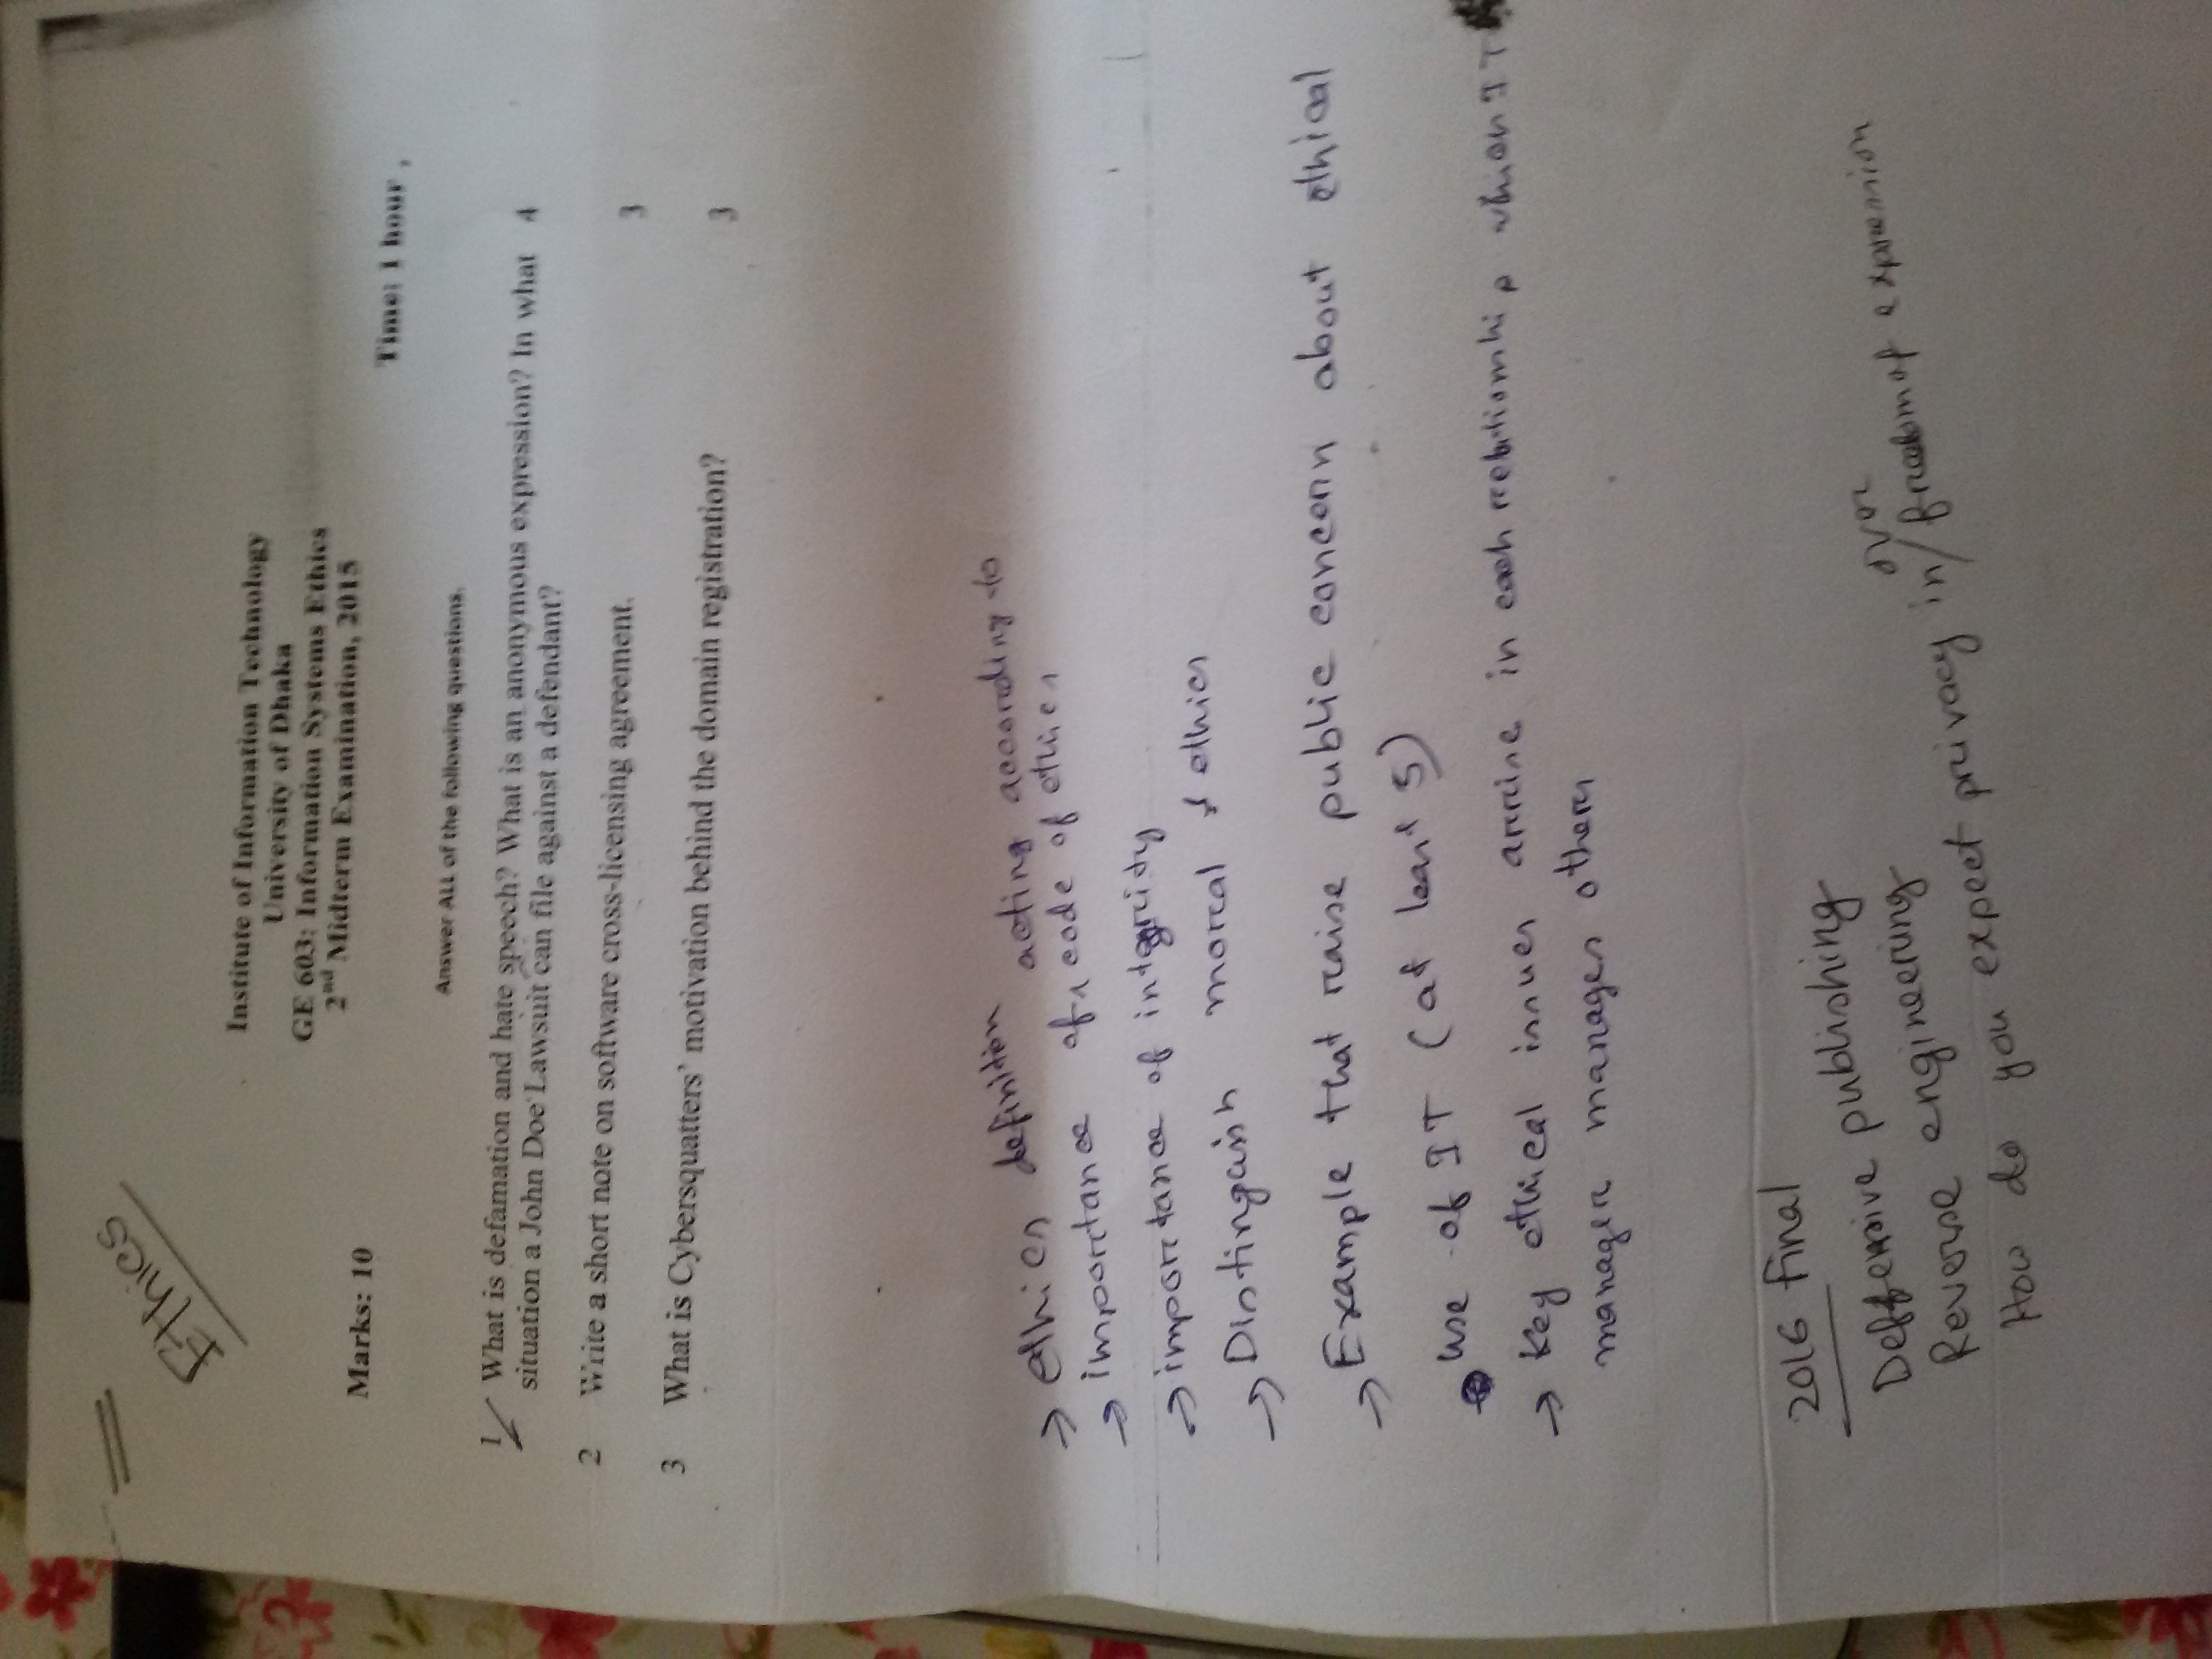 Ethics
Institute of Information Technology
University of Dhaka
GE 603: Information Systems Ethics
2nd Midterm Examination, 2015
Marks: 10
Time: 1 hour
Answer ALL of the following questions.
1 What is defamation and hate speech? What is an anonymous expression? In what 4
situation a John Doe Lawsuit can file against a defendant?
2 Write a short note on software cross-licensing agreement. 3
3 What is Cybersquatters’ motivation behind the domain registration? 3
→ ethics definition
acting according to
→ importance of code of ethics
→ importance of integrity
→ Distinguish moral & ethics
→ Example that raise public concern about ethical
use of IT (at least 5)
→ Key ethical issues arrise in each relationship which IT
manager manages others
2016 final
Deffensive publishing
Reverse engineering
over
How do you expect privacy in / freedom of expression